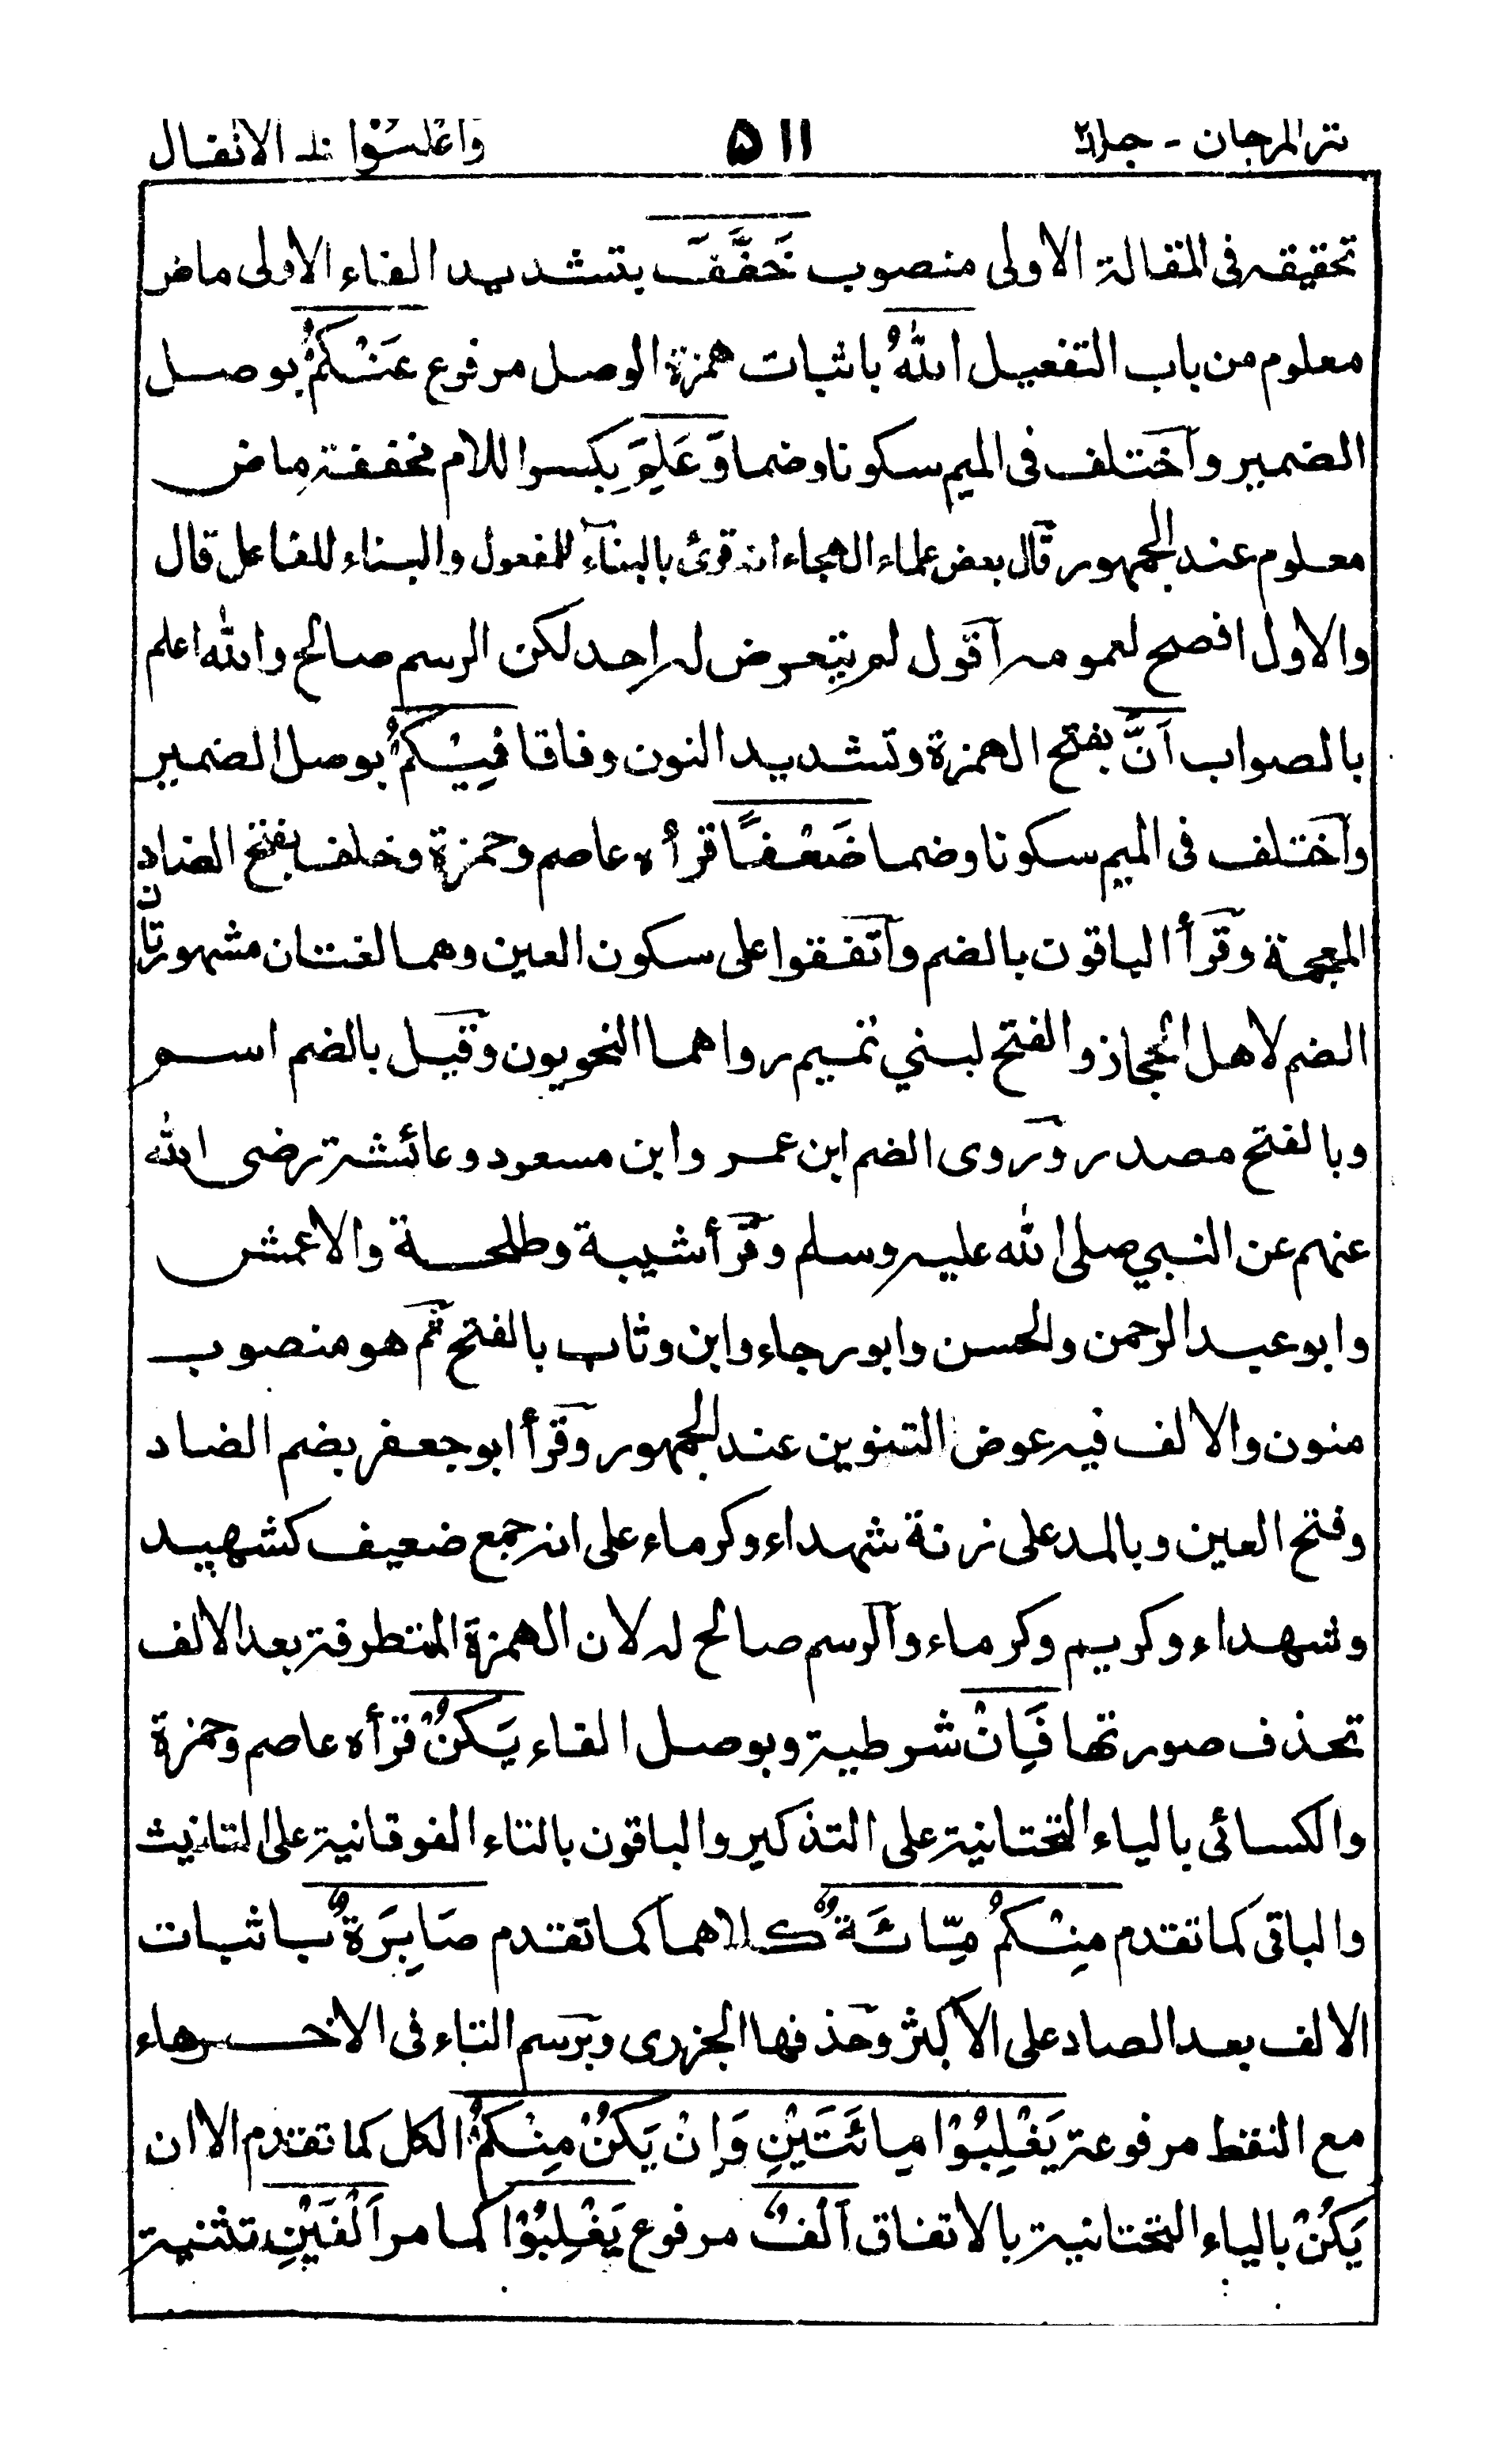 نثر المرجان - جلد٢ ٥١١ واعلموا ١٠ الانفال
تحقيقه فى المقالة الاولى منصوب خَفَّفَ بتشديد الفاء الاولى ماض
معلوم من باب التفعيل اللهُ باثبات همزة الوصل مرفوع عَنْكُمْ بوصل
الضمير واختلف فى الميم سكونا وضما وَعَلِمَ بكسر اللام مخففة ماض
معلوم عند الجمهور قال بعض علماء الهجاء انه قرئ بالبناء للمفعول والبناء للفاعل قال
والاول افصح لعمومه اقول لم يتعرض له احد لكن الرسم صالح والله اعلم
بالصواب اَنَّ بفتح الهمزة وتشديد النون وفاقا فِيْكُمْ بوصل الضمير
واختلف فى الميم سكونا وضما ضَعْفًا قرأه عاصم وحمزة وخلف بفتح الضاد
المعجمة وقرأ الباقون بالضم واتفقوا على سكون العين وهما لغتان مشهورتان
الضم لاهل الحجاز والفتح لبني تميم رواهما النحويون وقيل بالضم اسم
وبالفتح مصدر وروى الضم ابن عمر وابن مسعود وعائشة رضى الله
عنهم عن النبي صلى الله عليه وسلم وقرأ شيبة وطلحة والاعمش
وابو عبد الرحمن والحسن وابو رجاء وابن وثاب بالفتح ثم هو منصوب
منون والالف فيه عوض التنوين عند الجمهور وقرأ ابو جعفر بضم الضاد
وفتح العين وبالمد على زنة شهداء وكرماء على انه جمع ضعيف كشهيد
وشهداء وكريم وكرماء والرسم صالح له لان الهمزة المتطرفة بعد الالف
تحذف صورتها فَاِنْ شرطية وبوصل الفاء يَكُنْ قرأه عاصم وحمزة
والكسائى بالياء التحتانية على التذكير والباقون بالتاء الفوقانية على التانيث
والباقى كما تقدم مِنْكُمْ مِّائَةٌ كلاهما كما تقدم صَابِرَةٌ باثبات
الالف بعد الصاد على الاكثر وحذفها الجزرى وبرسم التاء فى الاخر هاء
مع النقط مرفوعة يَغْلِبُوْا مِائَتَيْنِ وَاِنْ يَكُنْ مِنْكُمْ الكل كما تقدم الا ان
يَكُنْ بالياء التحتانية بالاتفاق اَلْفٌ مرفوع يَغْلِبُوْا كما مر اَلْفَيْنِ تثنية